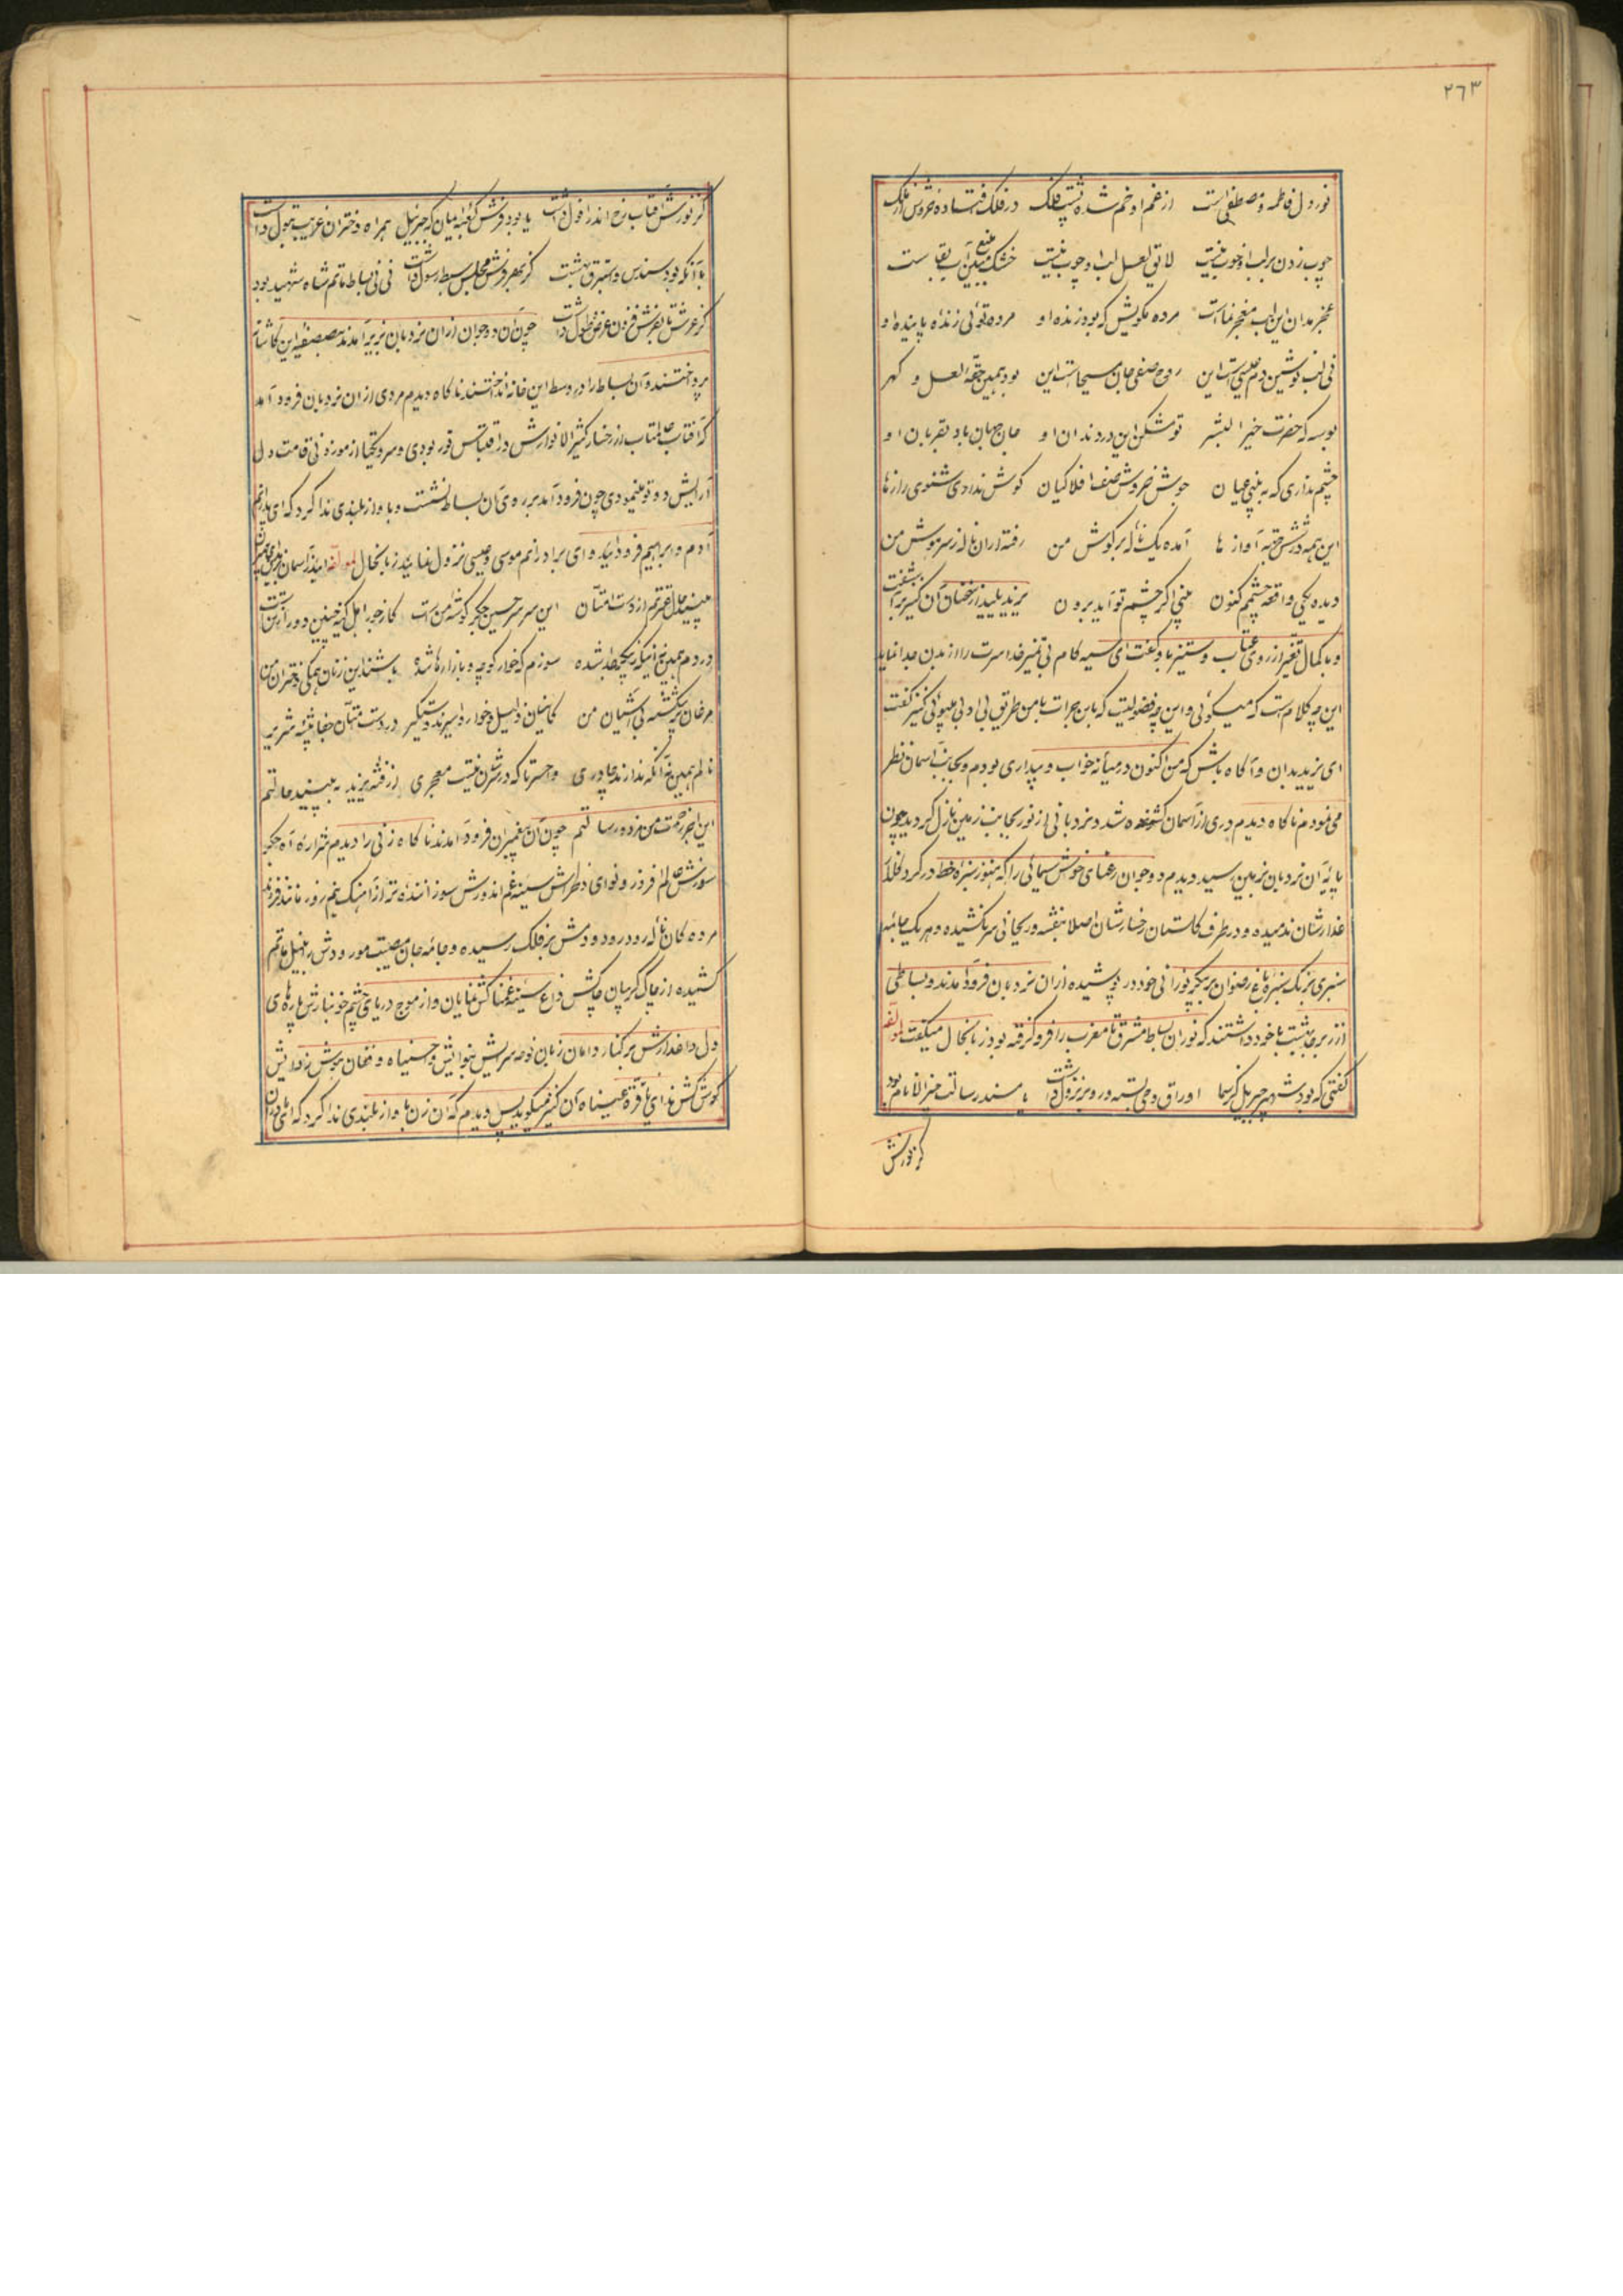 ٢٦٣
نور دل فاطمه و مصطفی است از غم او خم شده پشت فلک در فلک افتاده خروش ملک
چوب زدن بر لب او خوب نیست لایق لعل لب او چوب نیست خشک مبین آب بقا ست
عجز مدان این لب معجز نماست مرده مگویش که بود زنده او مرده توئی زنده پاینده او
نی لب نوشین دم عیسی است این روح صفی جان مسیحاست این بود همین حقه لعل و گهر
بوسه که حضرت خیر البشر تو مشکن این در دندان او جان جهان باد بقربان او
چشم نداری که به بینی عیان جوش خروش صف افلاکیان گوش نداری شنوی رازها
این همه در شش جهه آواز ها آمده یک ناله بر گوش من رفته ازان ناله ز سر هوش من
دیده یکی واقعه چشمم کنون بینی اگر چشم تو آید برون یزید پلید از سخنان آن کنیز برآشفت
و با کمال تغیر از روی عتاب و ستیز باو گفت ای سیه کام بی تمیز خدا سرت را از بدن جدا نماید
این چه کلام است که میگوئی و این چه فضولیست که باین جرات با من طریق بی ادبی میپوئی کنیز گفت
ای یزید بدان و آگاه باش که من اکنون در میانه خواب و بیداری بودم و بجانب آسمان نظر
می نمودم ناگاه دیدم دری از آسمان گشوده شد و نردبانی از نور بجانب زمین نازل گردید چون
پایه آن نردبان بزمین رسید دیدم دو جوان رعنای خوش سیمائی را که هنوز سبزه خط در گرد گلزار
عذارشان ندمیده و در طرف گلستان رخسارشان اصلا بنفشه و ریحانی سر نکشیده و هر یک جامه
سبزی برنگ سبزه باغ رضوان بر پیکر نورانی خود در پوشیده ازان نردبان فرود آمدند و بساطی
از زبرجد بهشت با خود داشتند که نور ان بساط مشرق تا مغرب را فرو گرفته بود زبانحال میگفت لمؤلفه
گفتی که بود شهپر جبریل کز سما اوراق وحی بسته در و بر نزول داشت یا مسند رسالت خیر الانام بود
کز نورش
کز نورش آفتاب رخ اندر افول داشت یا بود فرش کعبه میان که جبرئیل همراه دختران غریب بتول داشت
یا آنکه بود سندس و استبرق بهشت کز بهر فرش مجلس سبط رسول داشت نی نی بساط ماتم شاه شهید بود
کز عرش تا بفرش فزون عرض و طول داشت چون آن دو جوان ازان نردبان بزیر آمدند بصفیه این کاشانه
پرداختند و آن بساط را در وسط این خانه انداختند ناگاه دیدم مردی ازان نردبان فرود آمد
که آفتاب عالمتاب از رخسار کثیر الانوارش در اقتباس نور بودی و سرو یکتا از موزونی قامت دل
آرایش دو تو مینمودی چون فرود آمد بر روی آن بساط نشست و باواز بلندی ندا کرد که ای پدرانم
آدم و ابراهیم فرود آئید و ای برادرانم موسی و عیسی نزول نمائید زبانحال لمؤلفه آئید ز آسمان
بینید حال عترتم از دست امتان این سر سر حسین جگر گوشه من است
دردم همین نه اینکه بخون غلط شده سوزم که خوار کوچه و بازارها شده باشند این زنان همگی دختران من
مرغان پر شکسته بی آشیان من کاینان ذلیل و خوار و اسیرند و دستگیر در دست امتان جفا پیشه شریر
نالم همین نه آنکه ندارند چادری واحسرتا که در سرشان نیست معجری به بینید حالتم
این اجر زحمت من و مزد رسالتم چون آن پیغمبران فرود آمدند ناگاه زنی را دیدم شراره آه جگر
سوزش عالم افروز و نوای دلخراش سینه غم اندوزش سوزاننده تر از آهنگ نیم روز مانند فرزند
مرده کان ناله رود رود و دمش بر فلک رسیده و جامه جان مصیبت مورودش ر نیل ماتم
کشیده از چاک گریبان چاکش داغ سینه غمناکش نمایان و از موج دریای چشم خونبارش پارهای
دل داغدارش بر کنار دامان زبان نوحه سرایش بنوای وا حسیناه و فغان هوش زدایش
گوش کش ندای یا قرة عیناه آن کنیز میگوید پس دیدم که آن زن باواز بلندی ندا کرد که ای مادران